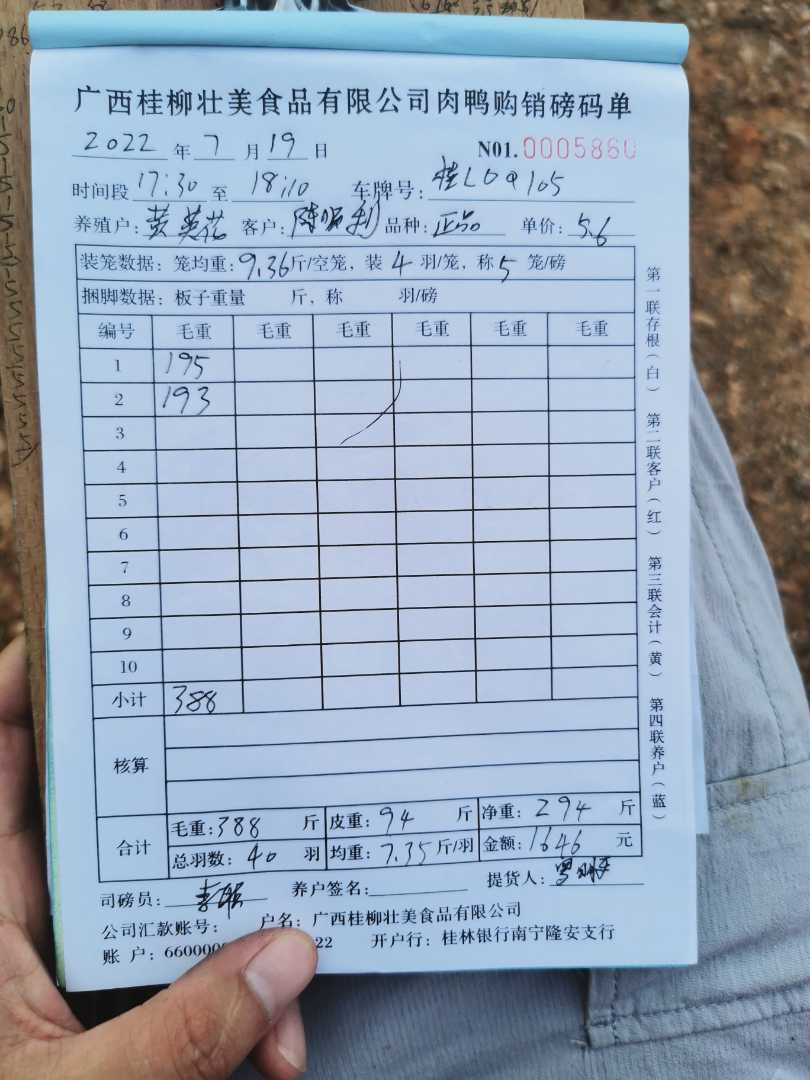 广西桂柳壮美食品有限公司肉鸭购销磅码单
2022 年 7 月 19 日 N01. 0005860
时间段 17:30 至 18:10 车牌号: 桂L09105
养殖户: 黄英花 客户: 陈 利 品种: 正品 单价: 5.6
装笼数据: 笼均重: 9.36 斤/空笼, 装 4 羽/笼, 称 5 笼/磅
捆脚数据: 板子重量 斤, 称 羽/磅
编号 毛重 毛重 毛重 毛重 毛重 毛重
1 195
2 193
3
4
5
6
7
8
9
10
小计 388
核算
合计 毛重: 388 斤 皮重: 94 斤 净重: 294 斤
总羽数: 40 羽 均重: 7.35 斤/羽 金额: 1646 元
司磅员: 养户签名: 提货人:
公司汇款账号: 户名: 广西桂柳壮美食品有限公司
账 户: 660000 22 开户行: 桂林银行南宁隆安支行
第一联存根(白) 第二联客户(红) 第三联会计(黄) 第四联养户(蓝)